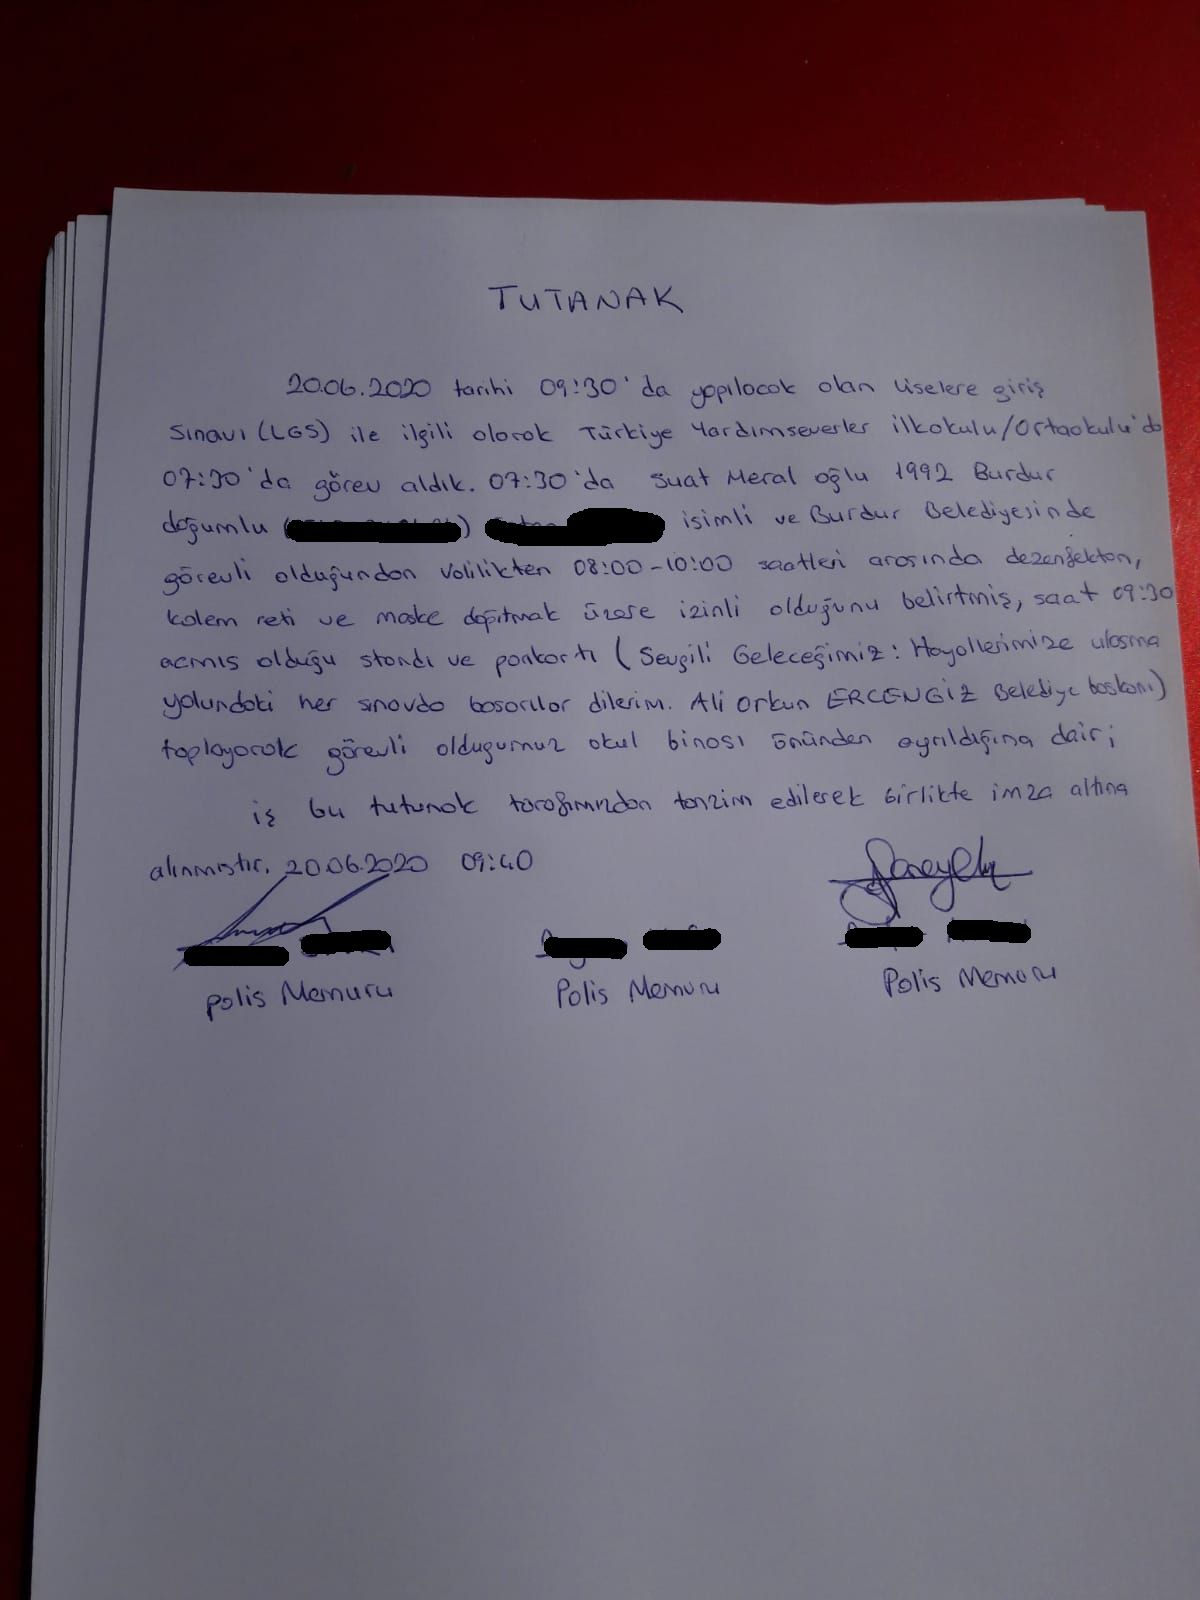 TUTANAK
20.06.2020 tarihi 09:30'da yapılacak olan Liselere giriş
Sınavı (LGS) ile ilgili olarak Türkiye Yardımsevenler ilkokulu/Ortaokulu'da
07:30'da görev aldık. 07:30'da Suat Meral oğlu 1992 Burdur
doğumlu ( ) isimli ve Burdur Belediyesinde
görevli olduğundan Valilikten 08:00-10:00 saatleri arasında dezenfektan,
kalem seti ve maske dağıtmak üzere izinli olduğunu belirtmiş, saat 09:30
açmıs olduğu standı ve pankartı (Sevgili Geleceğimiz: Hayallerimize ulasma
yolundaki her sınavda basarılar dilerim. Ali Orkun ERCENGİZ Belediye baskanı)
toplayarak görevli oldugumuz okul binası önünden ayrıldığına dair;
iş bu tutunak tarafımızdan tanzim edilerek birlikte imza altına
alınmıstır. 20.06.2020 09:40
Polis Memuru Polis Memuru Polis Memuru